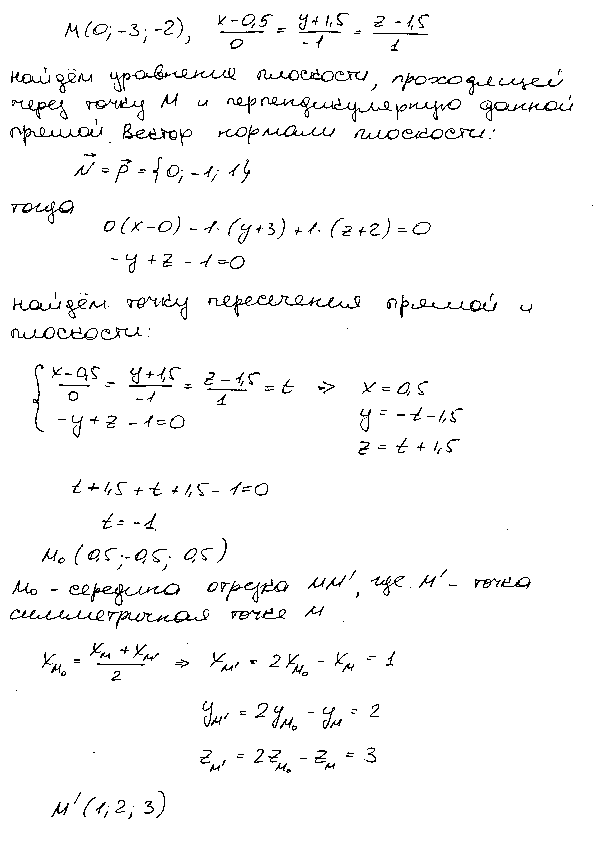 M(0; -3; -2), (x-0,5)/0 = (y+1,5)/-1 = (z-1,5)/1
найдём уравнение плоскости, проходящей
через точку M и перпендикулярную данной
прямой. Вектор нормали плоскости:
N⃗ = P⃗ = {0; -1; 1}
тогда
0(x-0) - 1·(y+3) + 1·(z+2) = 0
-y + z - 1 = 0
найдём точку пересечения прямой и
плоскости:
{ (x-0,5)/0 = (y+1,5)/-1 = (z-1,5)/1 = t ⇒ x = 0,5
-y + z - 1 = 0 y = -t - 1,5
z = t + 1,5
t + 1,5 + t + 1,5 - 1 = 0
t = -1
M₀ (0,5; -0,5; 0,5)
M₀ - середина отрезка MM', где M' - точка
симметричная точке M
x_M₀ = (x_M + x_M')/2 ⇒ x_M' = 2x_M₀ - x_M = 1
y_M' = 2y_M₀ - y_M = 2
z_M' = 2z_M₀ - z_M = 3
M'(1; 2; 3)